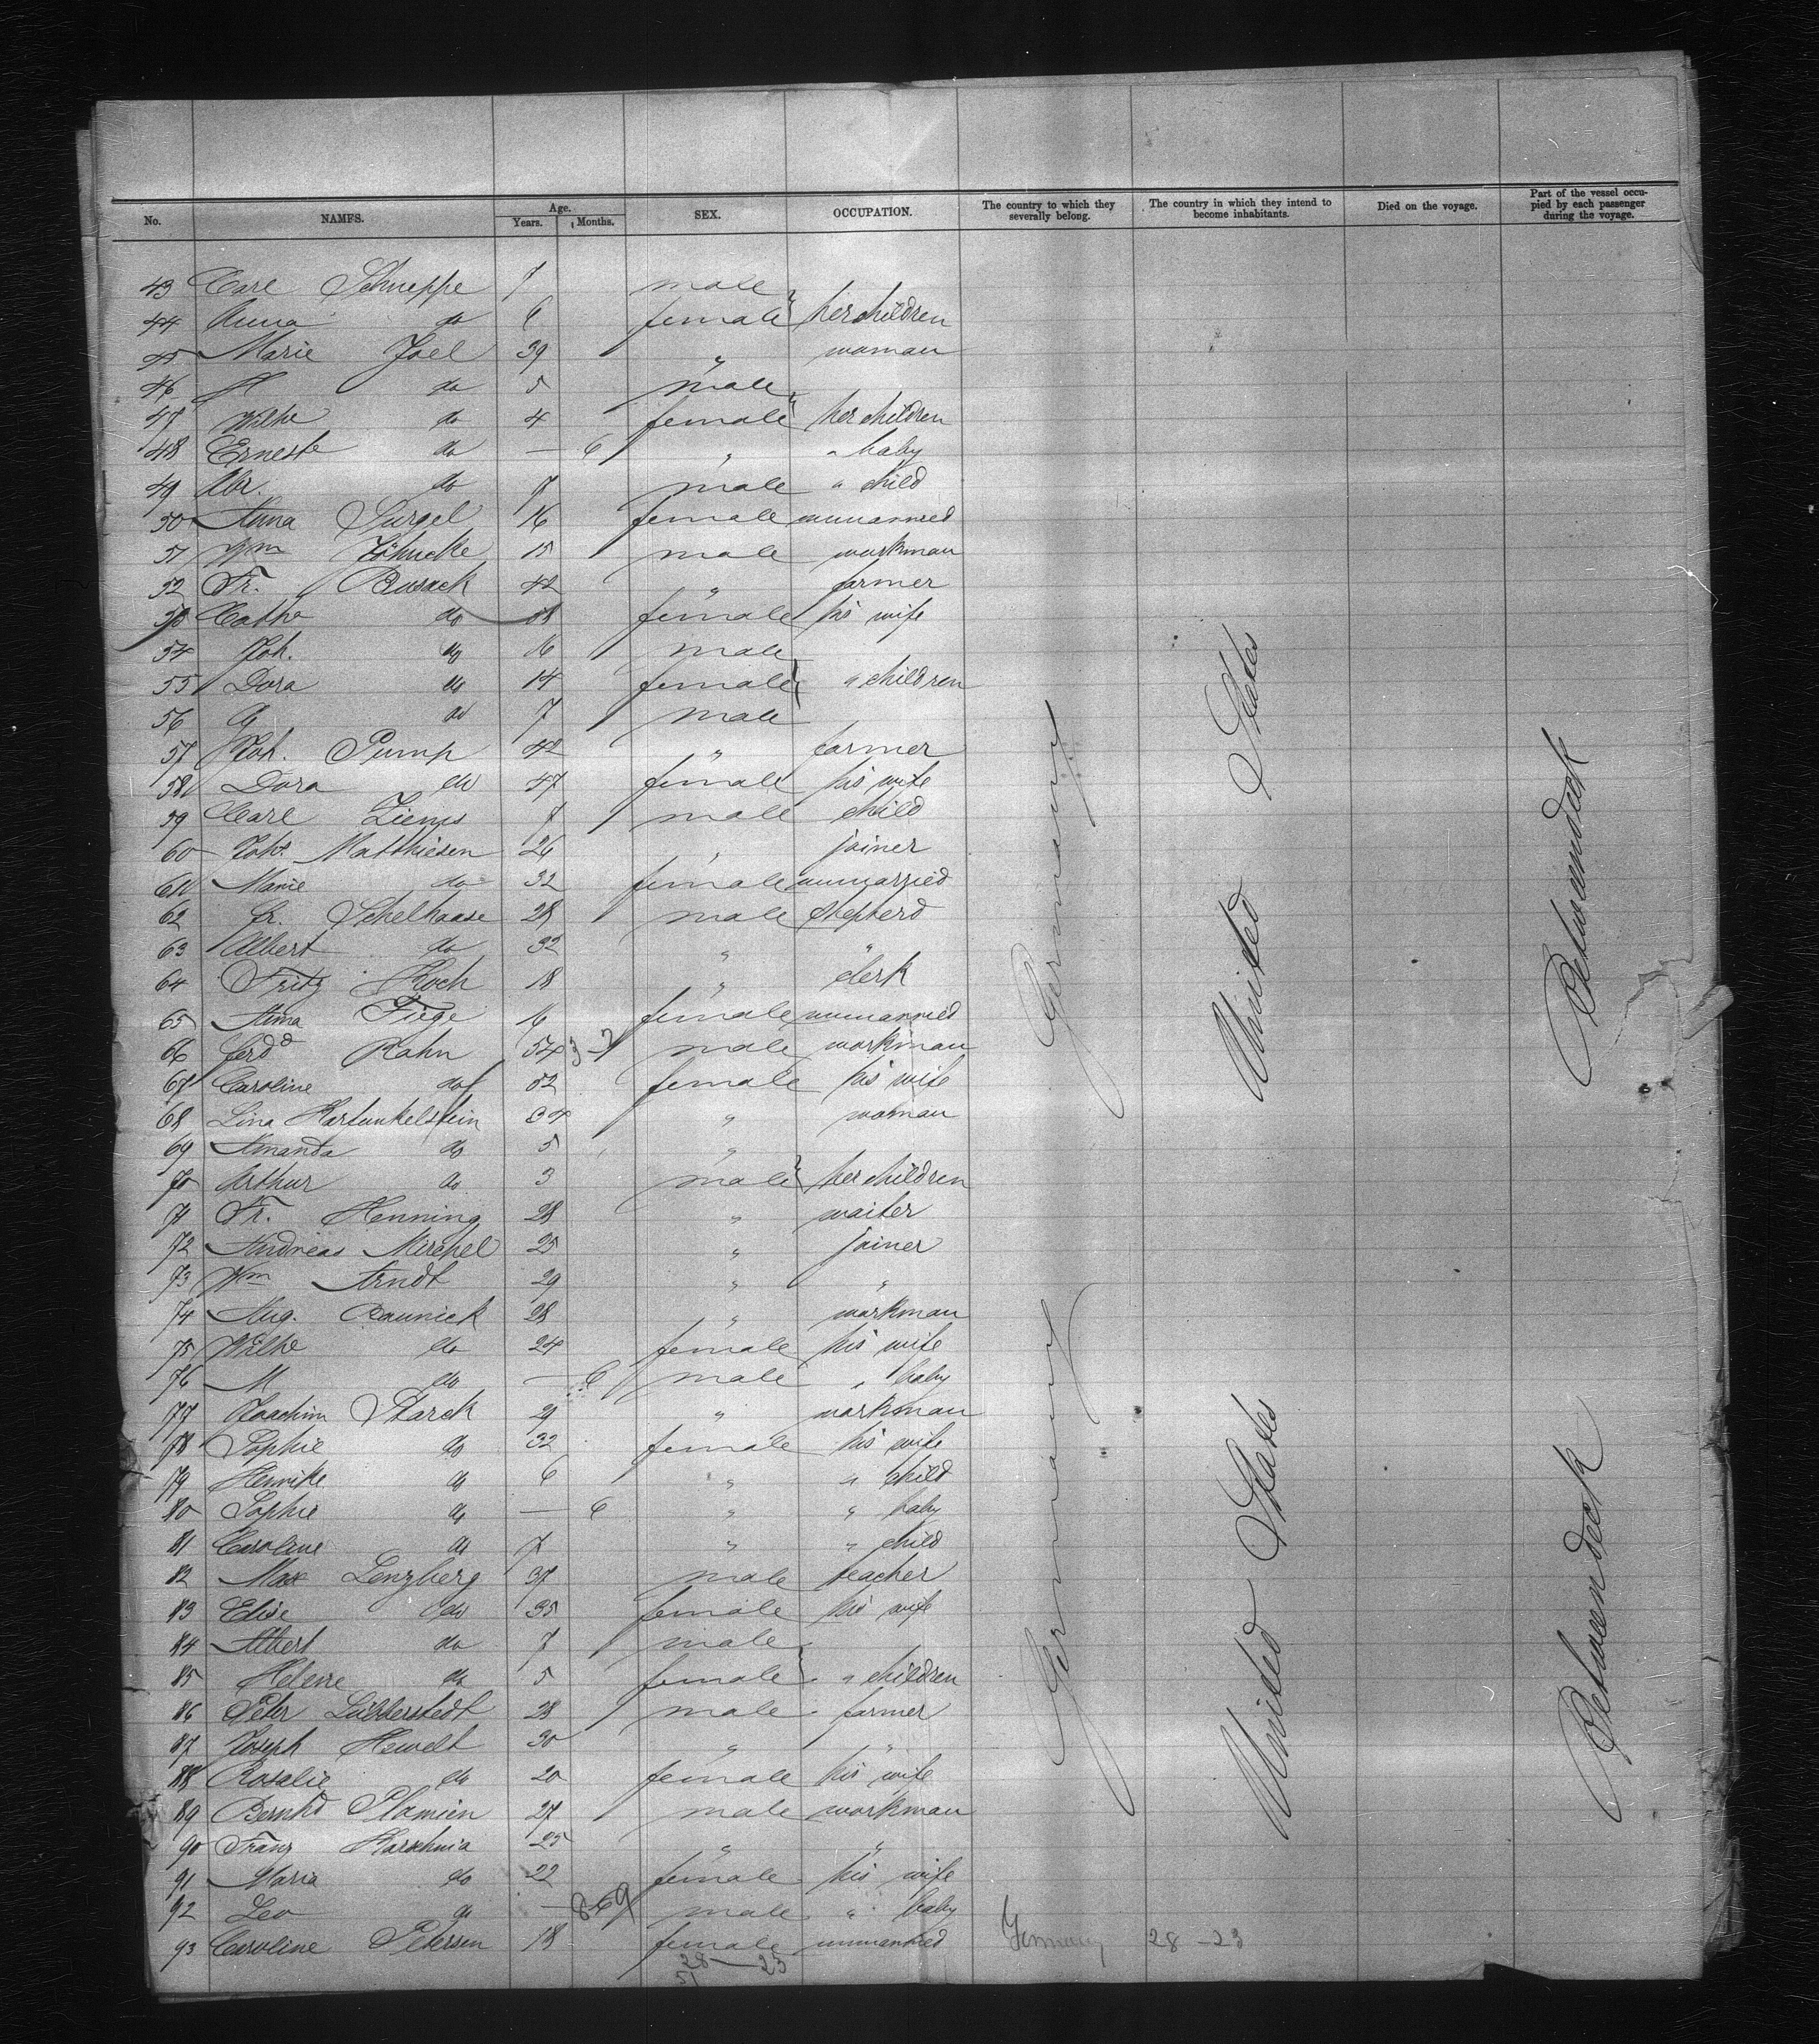 No. NAMES. Age. Years. Months. SEX. OCCUPATION. The country to which they severally belong. The country in which they intend to become inhabitants. Died on the voyage. Part of the vessel occupied by each passenger during the voyage.
43 Carl Schneppe 7 male
44 Anna do 6 female } her children
45 Marie Joel 39 " woman
46 H do 5 male
47 Wilhe do 4 female } her children
48 Erneste do — 6 " " baby
49 Abr. do 7 male " child
50 Anna Surgel 16 female unmarried
51 Wm Jöhncke 15 male workman
52 Fr. Busack 42 " farmer
53 Cathe do female his wife
54 Joh. do 16 male
55 Dora do 14 female } " children
56 do 7 male
57 Joh. Pump 42 " farmer
58 Dora do 47 female his wife
59 Carl Ziems 7 male child
60 Johs Matthiesen 26 " joiner
61 Marie do 32 female unmarried
62 Fr. Schelhaase 28 male shepherd
63 Albert do 32 " "
64 Fritz Koch 18 " clerk
65 Anna Fiege 16 female unmarried
66 Ferdd Rahn 54 3-7 male workman
67 Caroline do 52 female his wife
68 Lina Karfunkelstein 34 " woman
69 Amanda do 5 "
70 Arthur do 3 male } her children
71 Fr. Henning 28 " waiter
72 Andreas Mirchel 25 " joiner
73 Wm Arndt 29 " "
74 Aug. Baunick 28 " workman
75 Wilhe do 24 female his wife
76 M do — 6 male " baby
77 Joachim Starck 29 " workman
78 Sophie do 32 female his wife
79 Henrike do 6 " " child
80 Sophie do — 6 " " baby
81 Caroline do 7 " " child
82 Max Lenzberg 37 male teacher
83 Elise do 35 female his wife
84 Albert do 7 male
85 Helene do 5 female } " children
86 Peter Lübberstedt 28 male farmer
87 Joseph Hewelt 30 " "
88 Rosalie do 20 female his wife
89 Bernhd Plamien 27 male workman
90 Franz Karschnia 25 " "
91 Maria do 22 female his wife
92 Leo do — male " baby
93 Caroline Petersen 18 female unmarried Germany 28 - 23
28 — 23
51
Germany
United States
Betweendeck
Germany
United States
Betweendeck